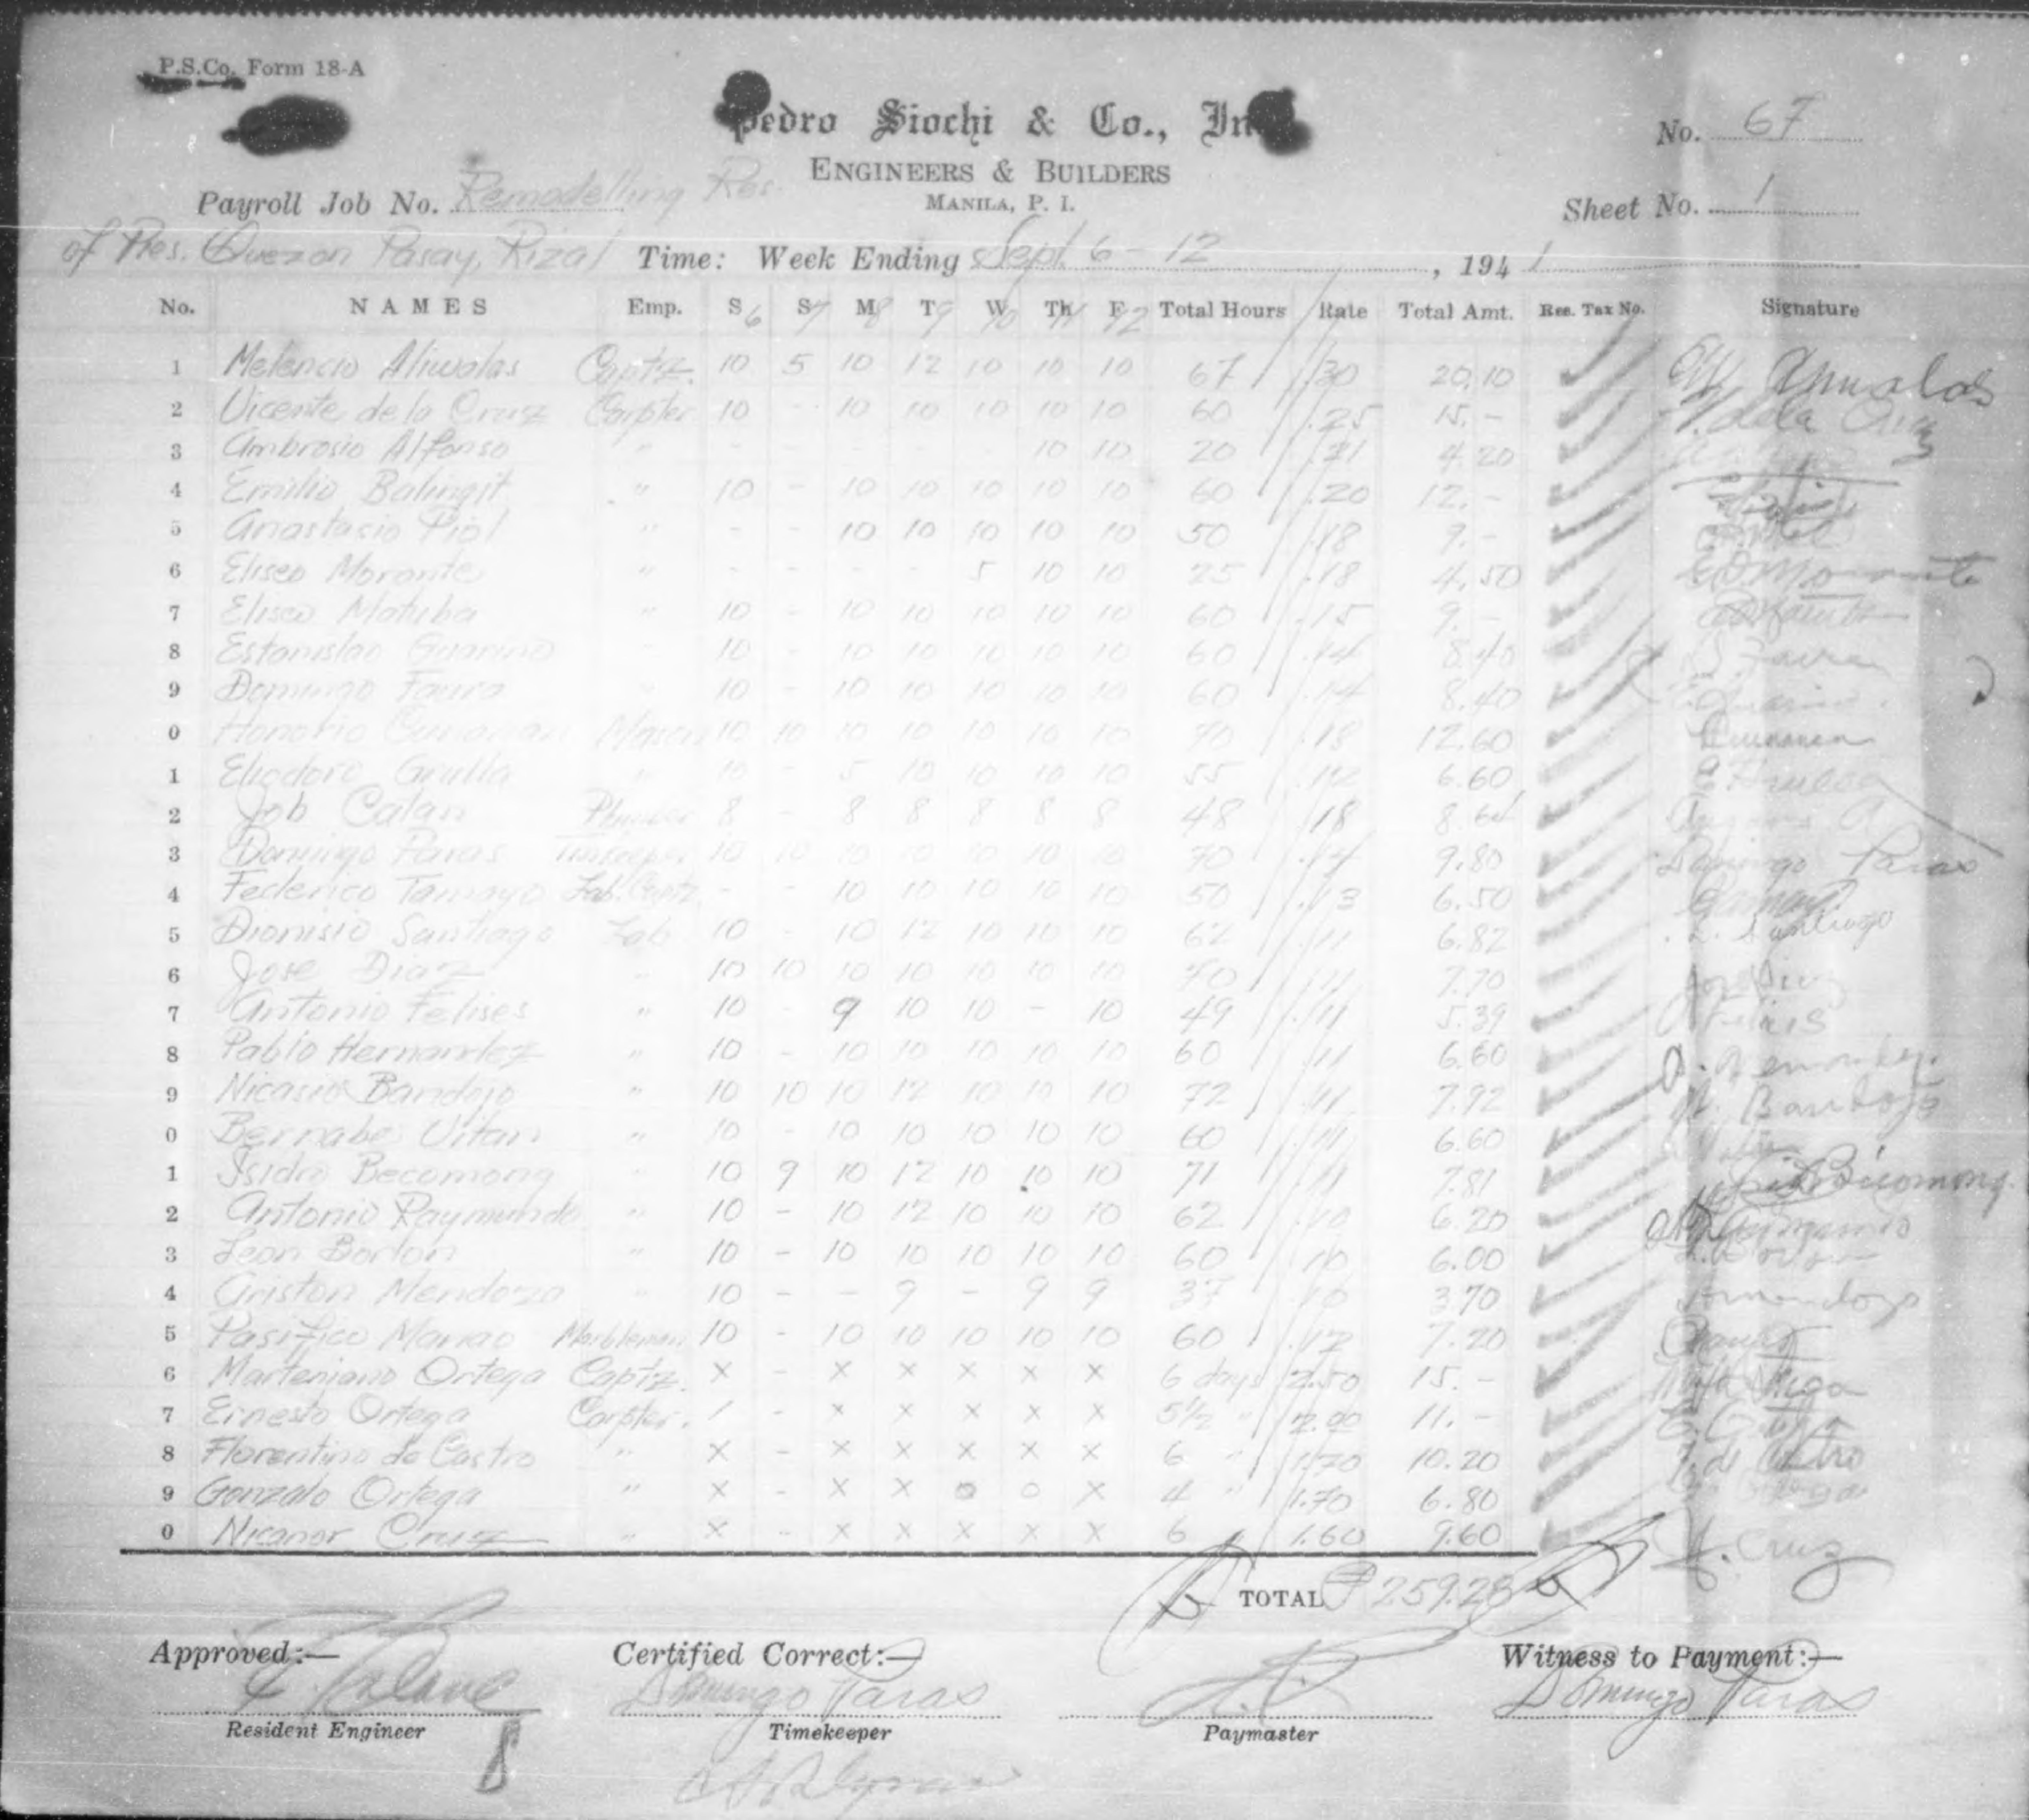 P.S.Co. Form 18-A
Pedro Siochi & Co., Inc.
No. 67
ENGINEERS & BUILDERS
Payroll Job No. Remodelling Res.
MANILA, P. I.
Sheet No. 1
of Pres. Quezon Pasay, Rizal Time: Week Ending Sept. 6 - 12, 1941
No. NAMES Emp. S 6 S 7 M 8 T 9 W 10 Th 11 F 12 Total Hours Rate Total Amt. Res. Tax No. Signature
1 Melencio Aliwalas Captz. 10 5 10 12 10 10 10 67 .30 20.10
2 Vicente de la Cruz Carpter 10 - 10 10 10 10 10 60 .25 15.- V. dela Cruz
3 Ambrosio Alfonso " - - - - - 10 10 20 .21 4.20
4 Emilio Balingit " 10 - 10 10 10 10 10 60 .20 12.-
5 Anastacio Piol " - - 10 10 10 10 10 50 .18 9.-
6 Eliseo Morante " - - - - 5 10 10 25 .18 4.50
7 Eliseo Matuba " 10 - 10 10 10 10 10 60 .15 9.-
8 Estanislao Guarino " 10 - 10 10 10 10 10 60 .14 8.40
9 Domingo Faura " 10 - 10 10 10 10 10 60 .14 8.40
0 Honorio Cunanan Mason 10 10 10 10 10 10 10 70 .18 12.60 Cunanan
1 Eliodoro Grulla " 10 - 5 10 10 10 10 55 .12 6.60
2 Job Calan Plumber 8 - 8 8 8 8 8 48 .18 8.64
3 Domingo Paras Timekeeper 10 10 10 10 10 10 10 70 .14 9.80 Domingo Paras
4 Federico Tamayo Lab. Captz. - - 10 10 10 10 10 50 .13 6.50
5 Dionisio Santiago Lab. 10 - 10 12 10 10 10 62 .11 6.82 D. Santiago
6 Jose Diaz " 10 10 10 10 10 10 10 70 .11 7.70 Jose Diaz
7 Antonio Felises " 10 - 9 10 10 - 10 49 .11 5.39
8 Pablo Hernandez " 10 - 10 10 10 10 10 60 .11 6.60
9 Nicasio Bandojo " 10 10 10 12 10 10 10 72 .11 7.92 N. Bandojo
0 Bernabe Vitan " 10 - 10 10 10 10 10 60 .11 6.60
1 Isidro Becomong " 10 9 10 12 10 10 10 71 .11 7.81 Bicomong
2 Antonio Raymundo " 10 - 10 12 10 10 10 62 .10 6.20
3 Leon Borlon " 10 - 10 10 10 10 10 60 .10 6.00
4 Ariston Mendoza " 10 - - 9 - 9 9 37 .10 3.70
5 Pasifico Manao Marbleman 10 - 10 10 10 10 10 60 .12 7.20
6 Marteniano Ortega Captz. x - x x x x x 6 days 2.50 15.-
7 Ernesto Ortega Carpter. / - x x x x x 5½ " 2.00 11.-
8 Florentino de Castro " x - x x x x x 6 " 1.70 10.20 F. de Castro
9 Gonzalo Ortega " x - x x o o x 4 " 1.70 6.80
0 Nicanor Cruz " x - x x x x x 6 1.60 9.60 N. Cruz
TOTAL ₱259.28
Approved:— Certified Correct:— Witness to Payment:—
Domingo Paras Domingo Paras
Resident Engineer Timekeeper Paymaster